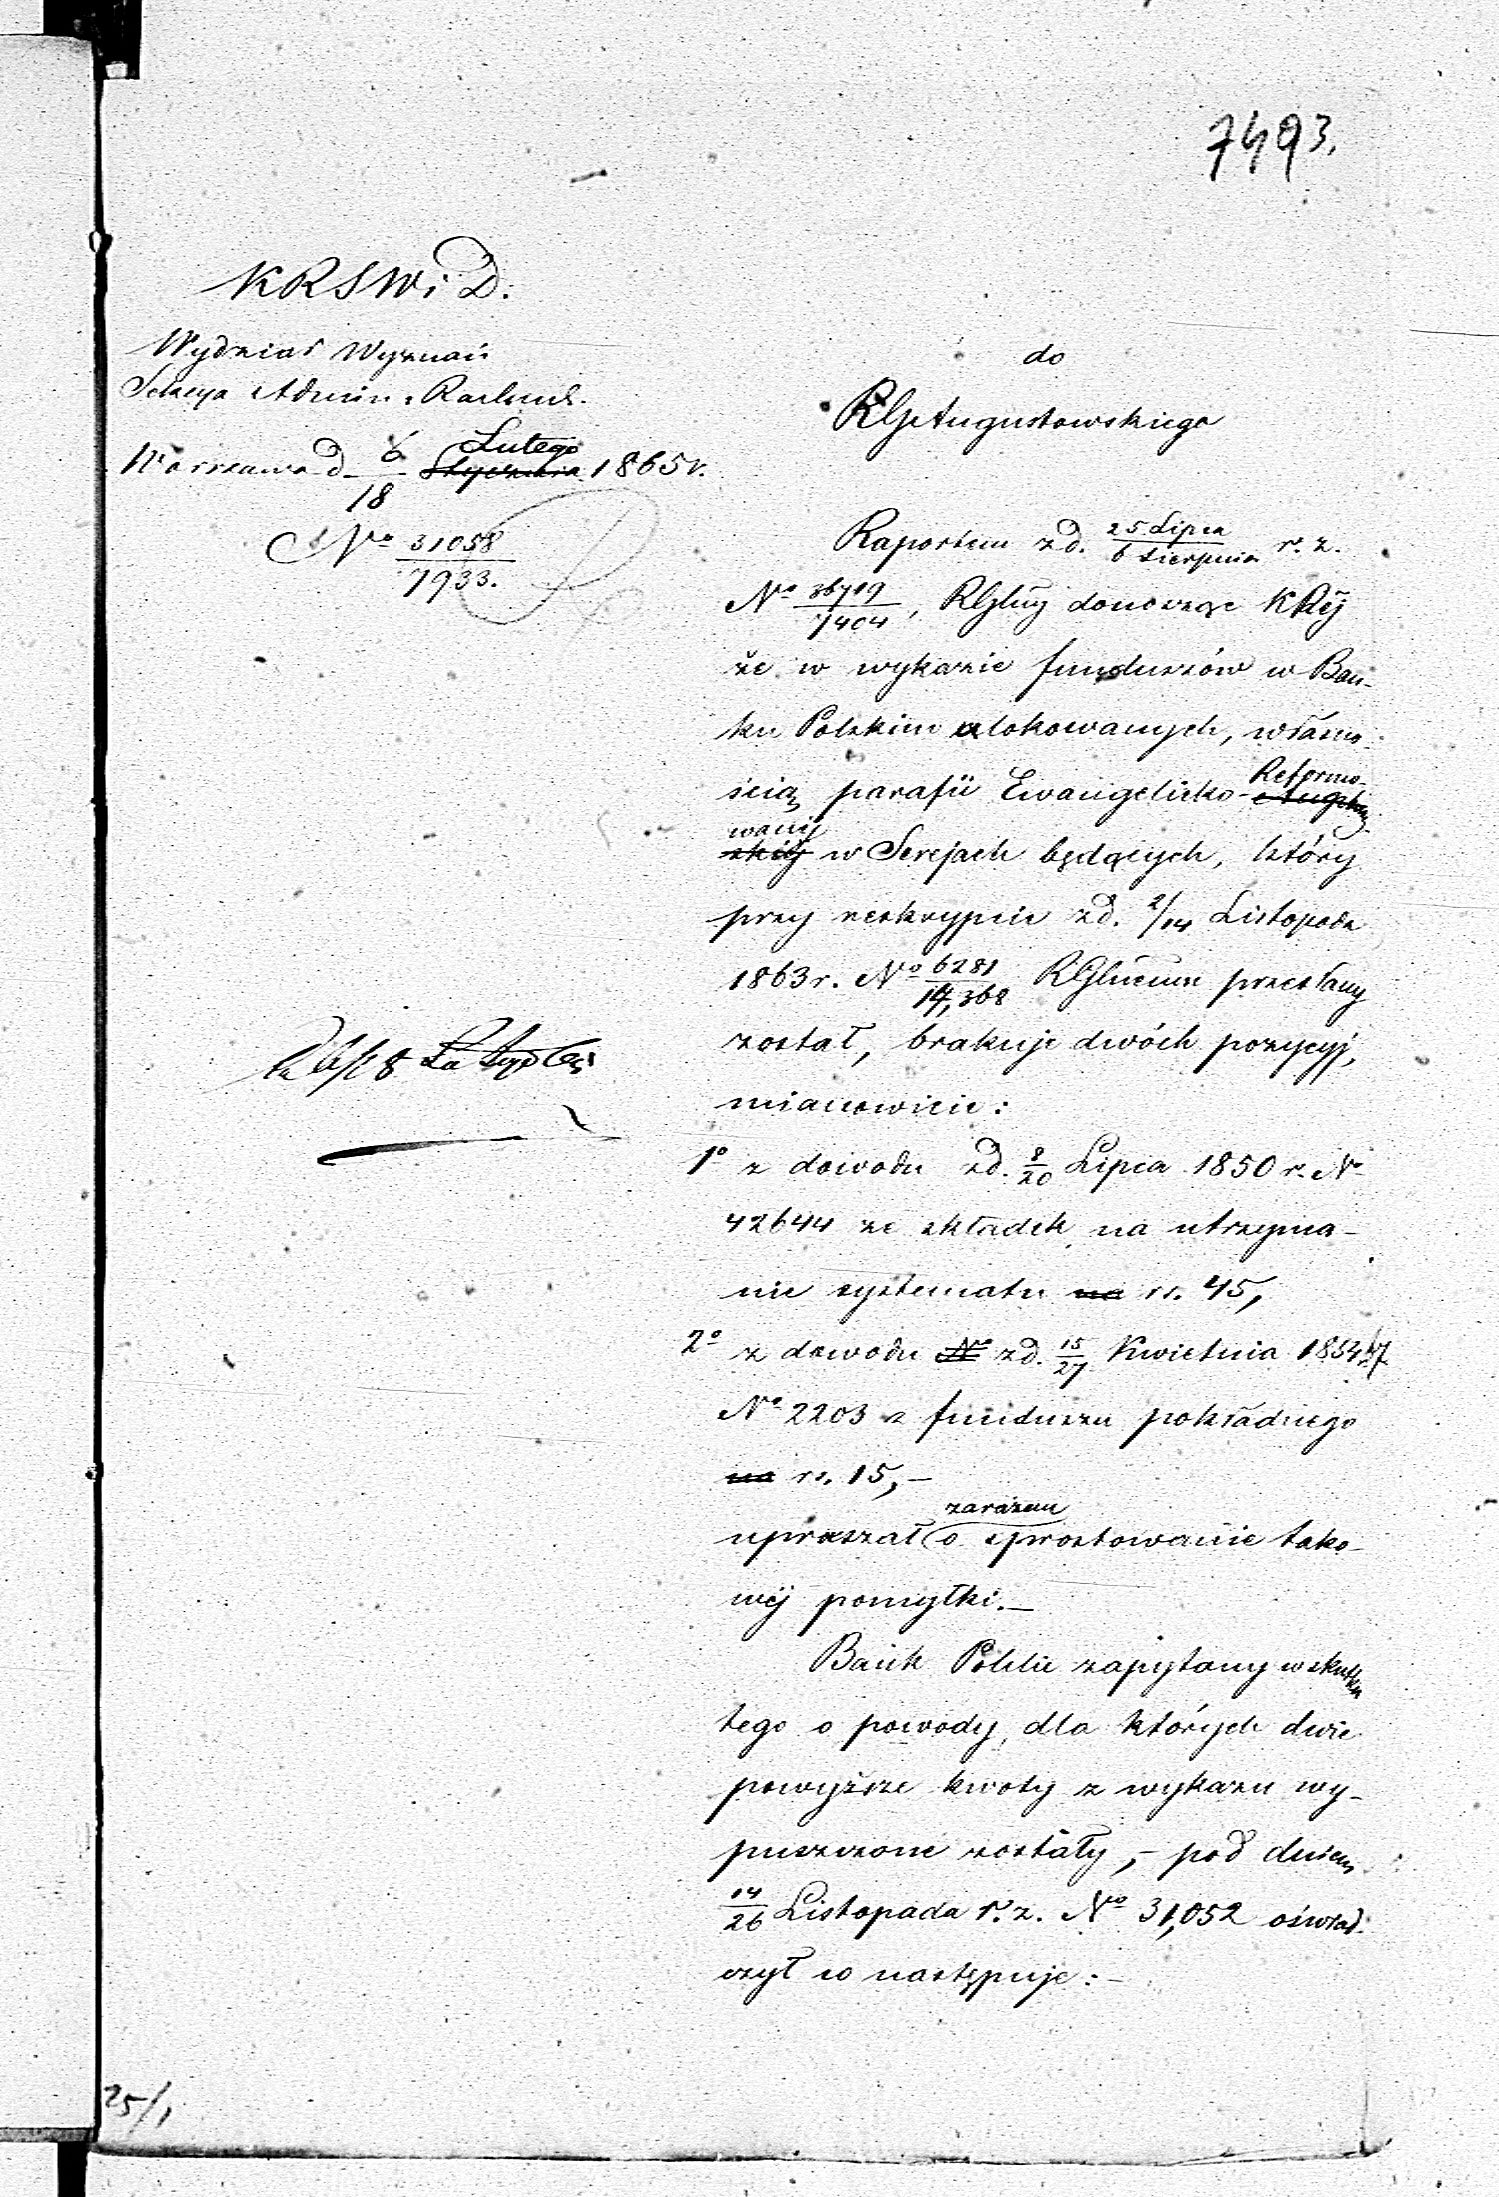 7493.
KRSWiD.
Wydział Wyznań
Sekcya Admin. Rachunk.
Warszawa d. 6/18 Lutego Stycznia 1865 r.
No 31058/7933.
do
RGAugustowskiego
Raportem z d. 25 Lipca/6 Sierpnia r. z.
No 36719/7404, RGlny donosząc KRéj
że w wykazie funduszów w Ban-
ku Polskim ulokowanych, własno-
ścią parafii Ewangelicko-Reformo- Augsburg-
wanéj skiéj w Serejach będących, który
przy reskrypcie z d. 2/14 Listopada
1863 r. No 6281/14,368 RGlnemu przesłany
został, brakuje dwóch pozycyj,
mianowicie:
1o z dowodu z d. 8/20 Lipca 1850 r. No
42644 ze składek na utrzyma-
nie systematu na rs. 45,
2o z dowodu No z d. 15/27 Kwietnia 1854
No 2203 z funduszu pokładnego
na rs. 15,-
zarazem
upraszał o sprostowanie tako-
wéj pomyłki.-
Bank Polski zapytany w skutku
tego o powody, dla których dwie
powyższe kwoty z wykazu wy-
puszczone zostały,- pod dniem
14/26 Listopada r. z. No 31,052 oświad-
czył co następuje:-
25/1